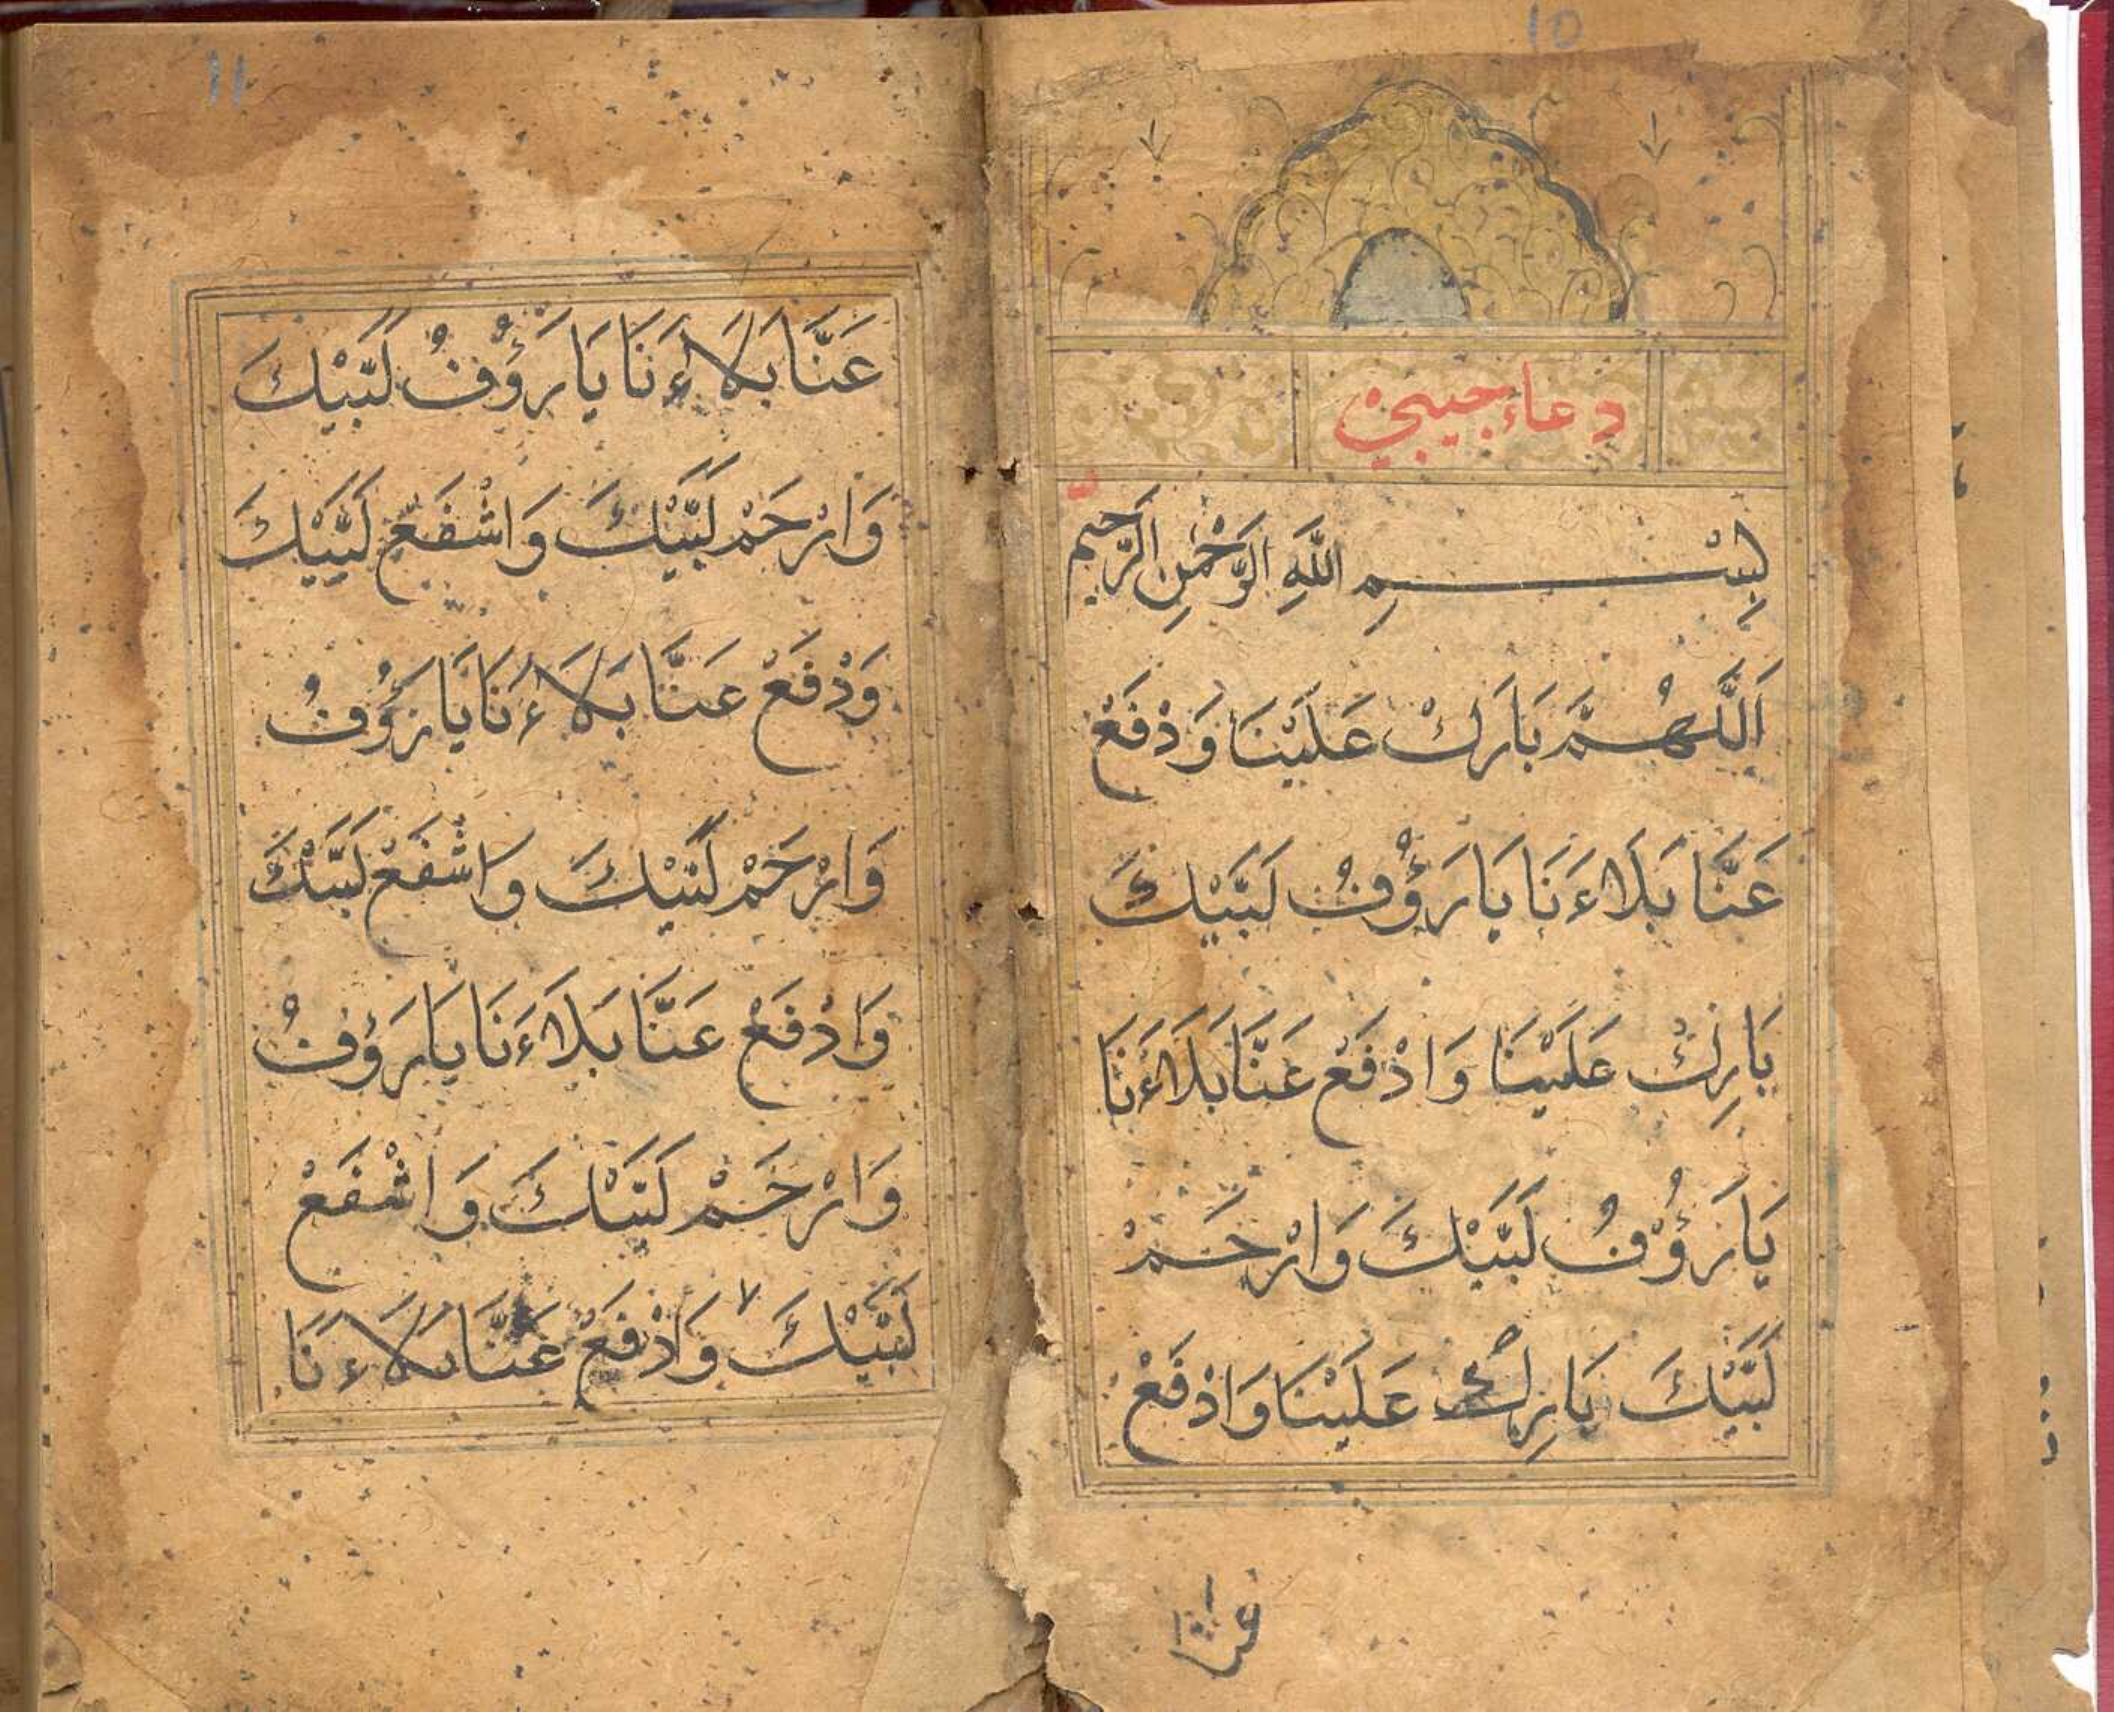 10
دعاء حبيبي
بِسْمِ اللَّهِ الرَّحْمٰنِ الرَّحِيمِ
اَللَّهُمَّ بَارَكْ عَلَيْنَا وَدْفَعْ
عَنَّا بَلَاءَنَا يَا رَؤُفُ لَبَّيْكَ
بَارِكْ عَلَيْنَا وَادْفَعْ عَنَّا بَلَاءَنَا
يَا رَؤُفُ لَبَّيْكَ وَارْحَمْ
لَبَّيْكَ بَارِكْ عَلَيْنَا وَادْفَعْ
عنا
11
عَنَّا بَلَاءَنَا يَا رَؤُفُ لَبَّيْكَ
وَارْحَمْ لَبَّيْكَ وَاشْفَعْ لَبَّيْكَ
وَدْفَعْ عَنَّا بَلَاءَنَا يَا رَؤُفُ
وَارْحَمْ لَبَّيْكَ وَاشْفَعْ لَبَّيْكَ
وَادْفَعْ عَنَّا بَلَاءَنَا يَا رَؤُفُ
وَارْحَمْ لَبَّيْكَ وَاشْفَعْ
لَبَّيْكَ وَادْفَعْ عَنَّا بَلَاءَنَا